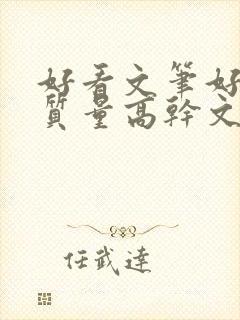 好看文笔好
质量高幹文
任武達